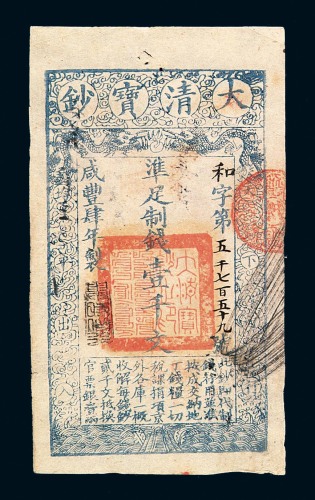 大清寶鈔
和字第五千七百五十九號
準足制錢壹千文
咸豐肆年製
此鈔即代制
錢行用並准
按成交納地
丁錢糧一切
稅課捐項京
外各庫一概
收解每錢鈔
貳千文抵換
官票銀壹兩